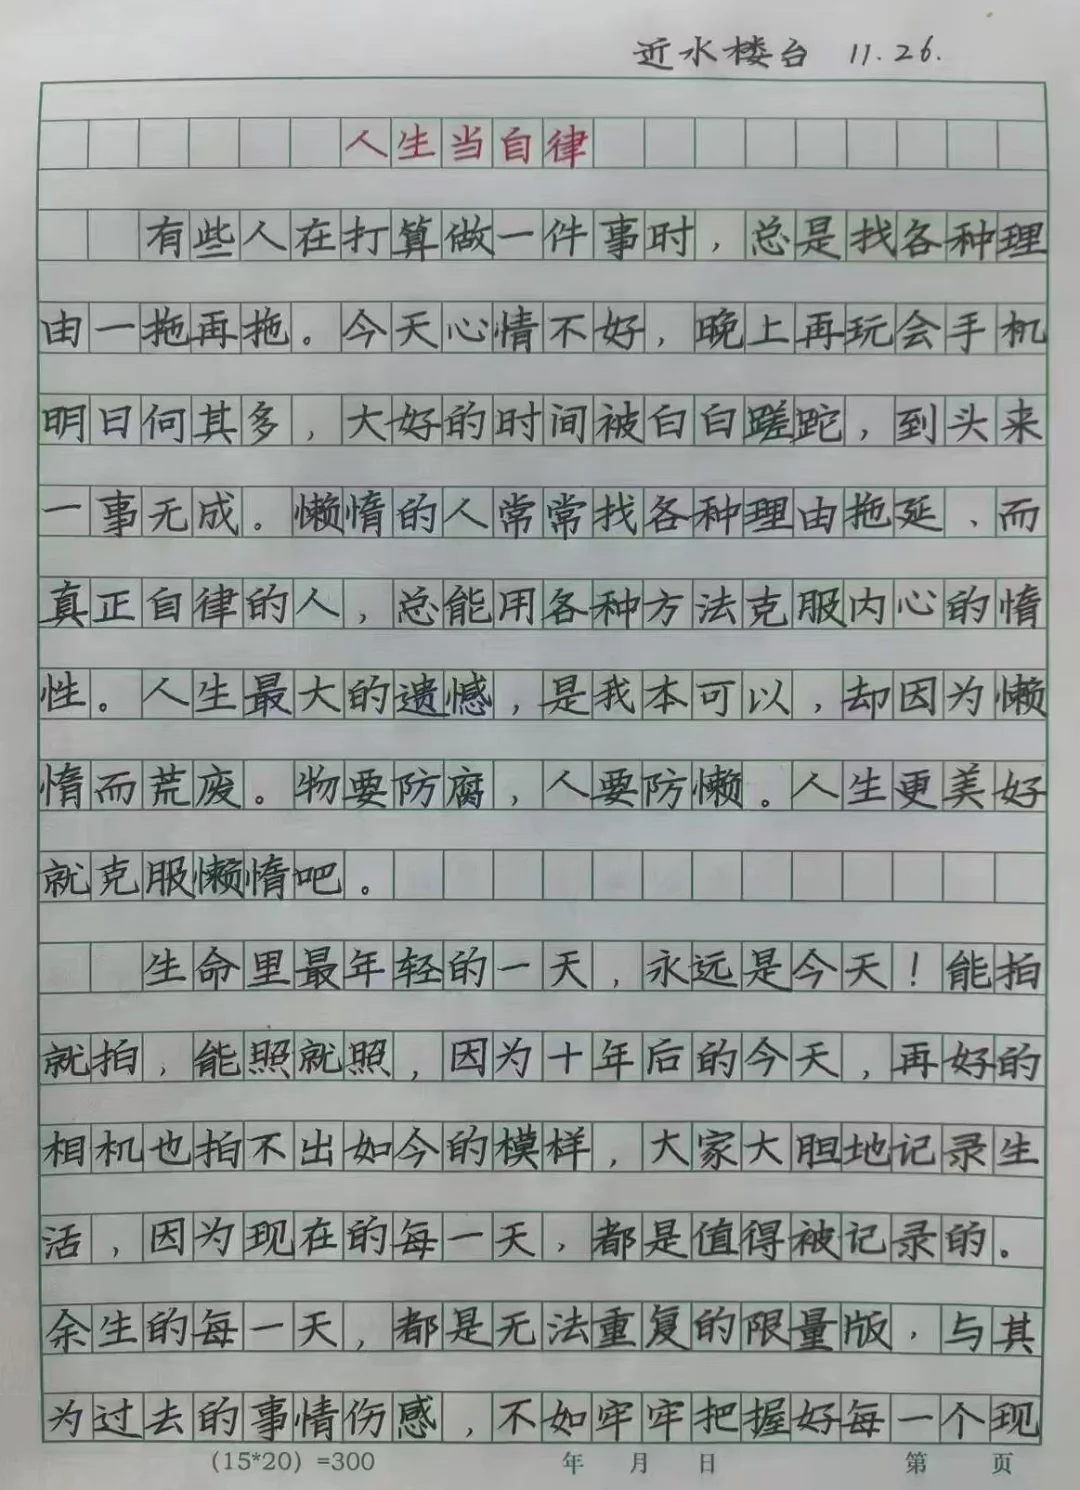 近水楼台 11.26.
人生当自律
有些人在打算做一件事时，总是找各种理
由一拖再拖。今天心情不好，晚上再玩会手机
明日何其多，大好的时间被白白蹉跎，到头来
一事无成。懒惰的人常常找各种理由拖延、而
真正自律的人，总能用各种方法克服内心的惰
性。人生最大的遗憾，是我本可以，却因为懒
惰而荒废。物要防腐，人要防懒。人生更美好
就克服懒惰吧。
生命里最年轻的一天，永远是今天！能拍
就拍，能照就照，因为十年后的今天，再好的
相机也拍不出如今的模样，大家大胆地记录生
活，因为现在的每一天，都是值得被记录的。
余生的每一天，都是无法重复的限量版，与其
为过去的事情伤感，不如牢牢把握好每一个现
(15*20) =300 年 月 日 第 页